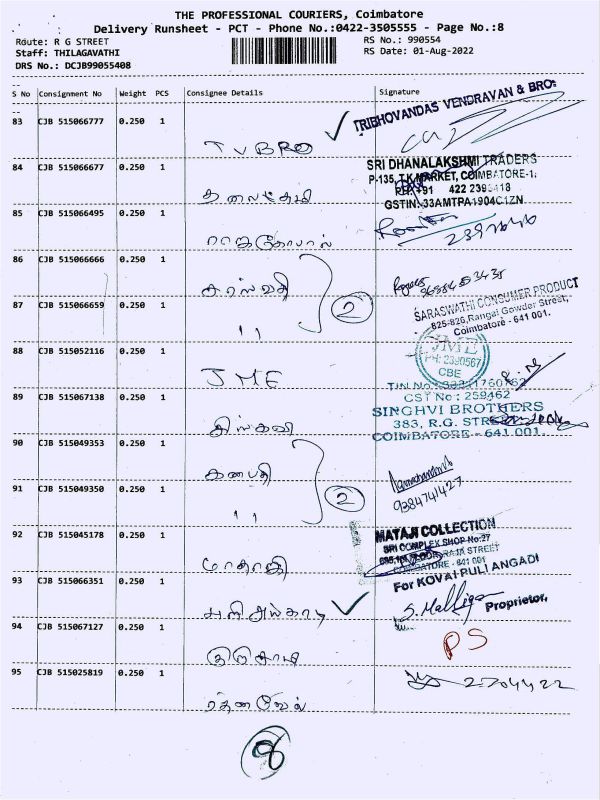 THE PROFESSIONAL COURIERS, Coimbatore
Delivery Runsheet - PCT - Phone No.:0422-3505555 - Page No.:8
Route: R G STREET
RS No.: 990554
Staff: THILAGAVATHI
RS Date: 01-Aug-2022
DRS No.: DCJB99055408
S No Consignment No Weight PCS Consignee Details Signature
83 CJB 515066777 0.250 1
TRIBHOVANDAS VENDRAVAN & BRO:
TVBRO
84 CJB 515066677 0.250 1
SRI DHANALAKSHMI TRADERS
P-135, T.K.MARKET, COIMBATORE-1.
GSTIN: 33AMTPA1904C1ZN
85 CJB 515066495 0.250 1
ராஜகோபால்
86 CJB 515066666 0.250 1
சரஸ்வதி
2
87 CJB 515066659 0.250 1
SARASWATHI CONSUMER PRODUCT
825-826, Rangai Gowder Street,
Coimbatore - 641 001.
,,
88 CJB 515052116 0.250 1
JME
PH: 2390567
CBE
JME
89 CJB 515067138 0.250 1
CST No : 259462
SINGHVI BROTHERS
383, R.G. STREET
COIMBATORE - 641 001.
90 CJB 515049353 0.250 1
கணபதி
2
91 CJB 515049350 0.250 1
9384741427
,,
92 CJB 515045178 0.250 1
MATAJI COLLECTION
SRI COMPLEX SHOP No:27
COIMBATORE - 641 001
மாதாஜி
93 CJB 515066351 0.250 1
For KOVAI PULI ANGADI
Proprietor.
94 CJB 515067127 0.250 1
PS
95 CJB 515025819 0.250 1
2704422
ரத்னவேல்
8